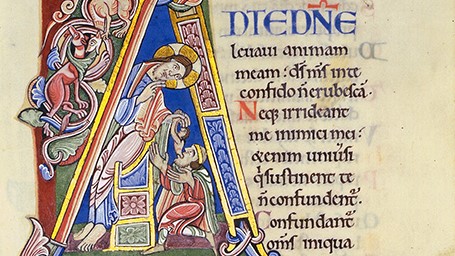 AD TE DN̄E
leuaui animam
meam: d̄s m̄s in te
confido n̄ erubescā.
Neq; irrideant
me inimici mei:
&enim uniūsi
q̄ sustinent te
n̄ confundent̄.
Confundant̄
om̄s iniqua